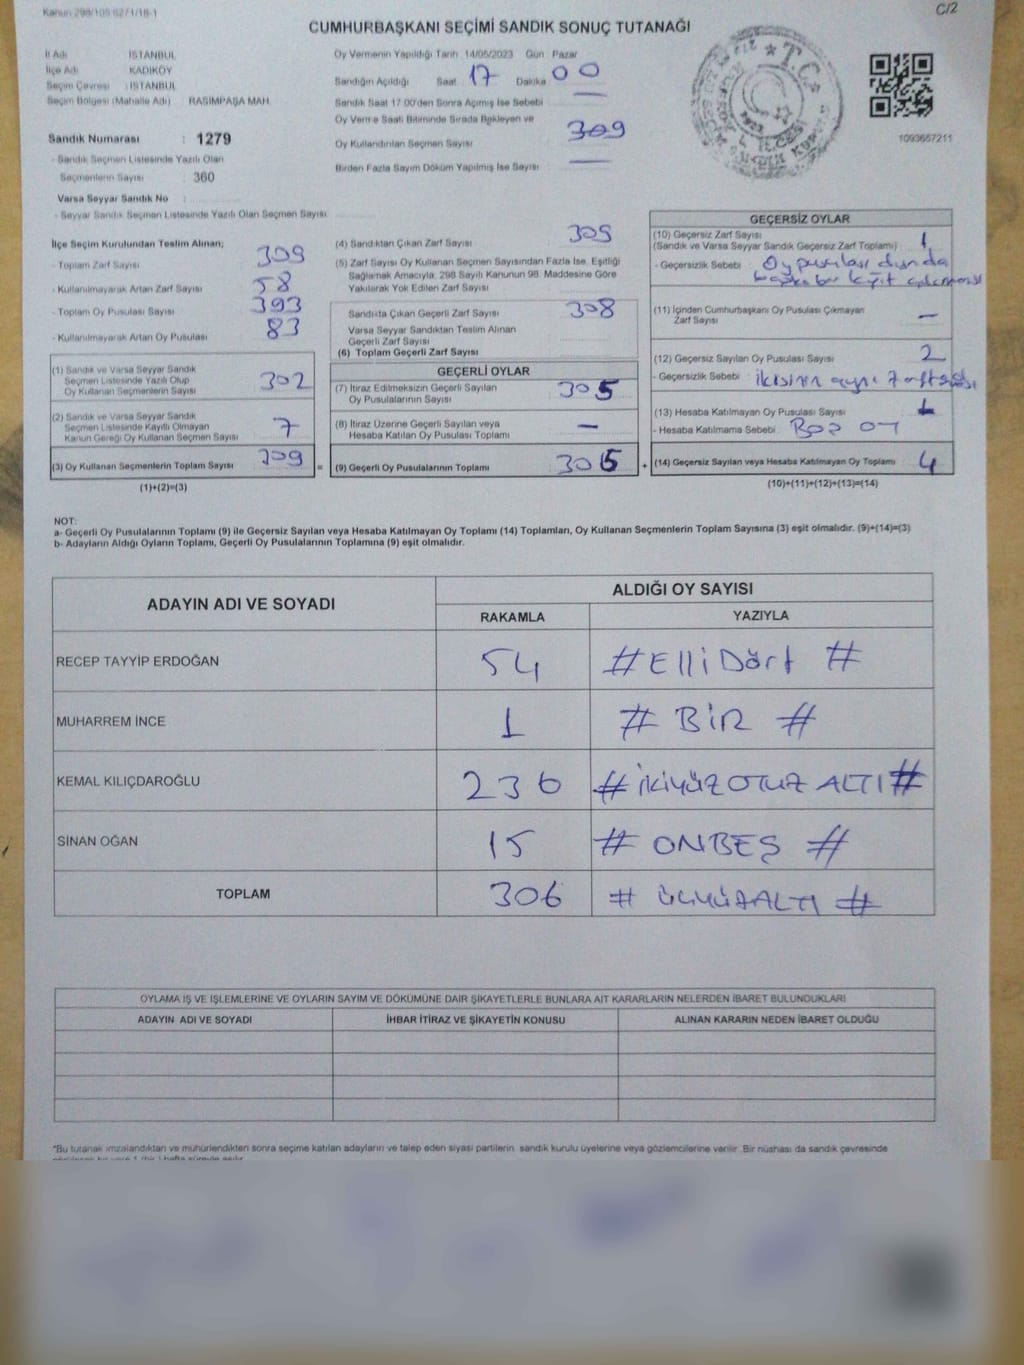 C/2
CUMHURBAŞKANI SEÇİMİ SANDIK SONUÇ TUTANAĞI
İl Adı : İSTANBUL
İlçe Adı : KADIKÖY
Seçim Çevresi : İSTANBUL
Seçim Bölgesi (Mahalle Adı) : RASİMPAŞA MAH.
Sandık Numarası : 1279
- Sandık Seçmen Listesinde Yazılı Olan
Seçmenlerin Sayısı : 360
Varsa Seyyar Sandık No :
- Seyyar Sandık Seçmen Listesinde Yazılı Olan Seçmen Sayısı
Oy Vermenin Yapıldığı Tarih 14/05/2023 Gün Pazar
Sandığın Açıldığı Saat 17 Dakika 00
Sandık Saat 17.00'den Sonra Açılmış İse Sebebi —
Oy Verme Saati Bitiminde Sırada Bekleyen ve
Oy Kullandırılan Seçmen Sayısı 309
Birden Fazla Sayım Döküm Yapılmış İse Sayısı —
T.C.
1093657211
İlçe Seçim Kurulundan Teslim Alınan;
- Toplam Zarf Sayısı 309
- Kullanılmayarak Artan Zarf Sayısı 58
- Toplam Oy Pusulası Sayısı 393
- Kullanılmayarak Artan Oy Pusulası 83
(1) Sandık ve Varsa Seyyar Sandık
Seçmen Listesinde Yazılı Olup
Oy Kullanan Seçmenlerin Sayısı 302
(2) Sandık ve Varsa Seyyar Sandık
Seçmen Listesinde Kayıtlı Olmayan
Kanun Gereği Oy Kullanan Seçmen Sayısı 7
(3) Oy Kullanan Seçmenlerin Toplam Sayısı 309 =
(1)+(2)=(3)
(4) Sandıktan Çıkan Zarf Sayısı 309
(5) Zarf Sayısı Oy Kullanan Seçmen Sayısından Fazla İse, Eşitliği
Sağlamak Amacıyla, 298 Sayılı Kanunun 98. Maddesine Göre
Yakılarak Yok Edilen Zarf Sayısı
Sandıkta Çıkan Geçerli Zarf Sayısı 308
Varsa Seyyar Sandıktan Teslim Alınan
Geçerli Zarf Sayısı
(6) Toplam Geçerli Zarf Sayısı
GEÇERLİ OYLAR
(7) İtiraz Edilmeksizin Geçerli Sayılan
Oy Pusulalarının Sayısı 305
(8) İtiraz Üzerine Geçerli Sayılan veya
Hesaba Katılan Oy Pusulası Toplamı —
(9) Geçerli Oy Pusulalarının Toplamı 305 +
GEÇERSİZ OYLAR
(10) Geçersiz Zarf Sayısı
(Sandık ve Varsa Seyyar Sandık Geçersiz Zarf Toplamı) 1
- Geçersizlik Sebebi Oy pusulası dışında
başka bir kağıt çıkması
(11) İçinden Cumhurbaşkanı Oy Pusulası Çıkmayan
Zarf Sayısı —
(12) Geçersiz Sayılan Oy Pusulası Sayısı 2
- Geçersizlik Sebebi ikisinin aynı zarfta
(13) Hesaba Katılmayan Oy Pusulası Sayısı 1
- Hesaba Katılmama Sebebi Boş oy
(14) Geçersiz Sayılan veya Hesaba Katılmayan Oy Toplamı 4
(10)+(11)+(12)+(13)=(14)
NOT:
a- Geçerli Oy Pusulalarının Toplamı (9) ile Geçersiz Sayılan veya Hesaba Katılmayan Oy Toplamı (14) Toplamları, Oy Kullanan Seçmenlerin Toplam Sayısına (3) eşit olmalıdır. (9)+(14)=(3)
b- Adayların Aldığı Oyların Toplamı, Geçerli Oy Pusulalarının Toplamına (9) eşit olmalıdır.
ADAYIN ADI VE SOYADI
ALDIĞI OY SAYISI
RAKAMLA YAZIYLA
RECEP TAYYİP ERDOĞAN 54 # Elli Dört #
MUHARREM İNCE 1 # BİR #
KEMAL KILIÇDAROĞLU 236 # İKİYÜZ OTUZ ALTI #
SİNAN OĞAN 15 # ONBEŞ #
TOPLAM 306 # ÜÇYÜZALTI #
OYLAMA İŞ VE İŞLEMLERİNE VE OYLARIN SAYIM VE DÖKÜMÜNE DAİR ŞİKAYETLERLE BUNLARA AİT KARARLARIN NELERDEN İBARET BULUNDUKLARI
ADAYIN ADI VE SOYADI İHBAR İTİRAZ VE ŞİKAYETİN KONUSU ALINAN KARARIN NEDEN İBARET OLDUĞU
*Bu tutanak imzalandıktan ve mühürlendikten sonra seçime katılan adayların ve talep eden siyasi partilerin, sandık kurulu üyelerine veya gözlemcilerine verilir. Bir nüshası da sandık çevresinde